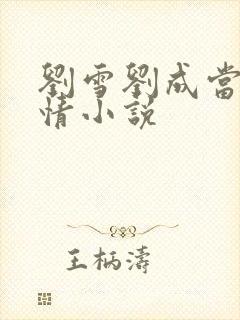 劉雪劉成當
情小說
王柄濤